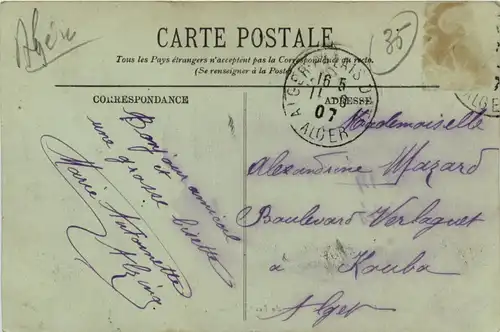 Algérie
35
CARTE POSTALE
Tous les Pays étrangers n'acceptent pas la Correspondance au recto.
(Se renseigner à la Poste)
CORRESPONDANCE
ADRESSE
ALGER
16 5
07
ALGER
Bonjour amical
et
une grosse bisette
Marie Antoinette
Mademoiselle
Alexandrine Mazard
Boulevard Verlaguet
à Kouba
Alger